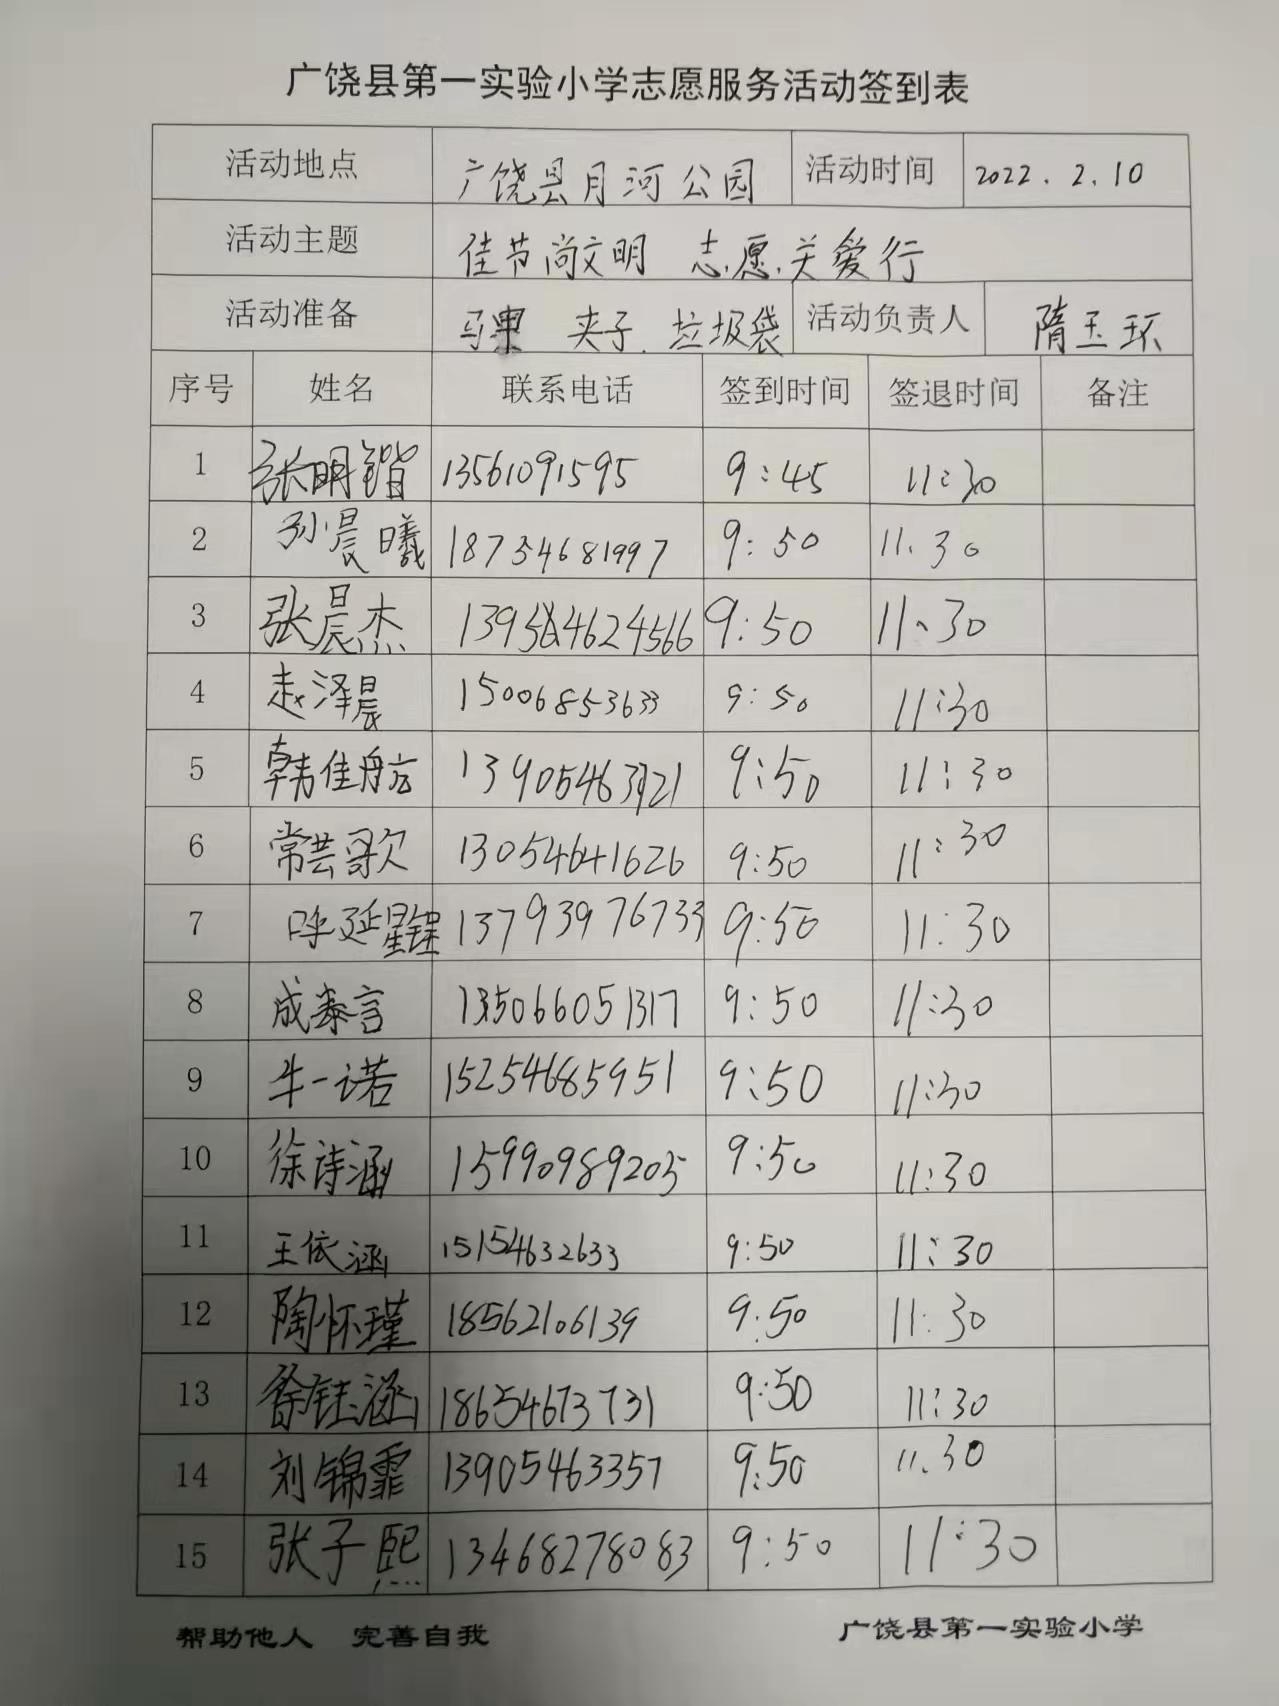 广饶县第一实验小学志愿服务活动签到表
活动地点 广饶县月河公园 活动时间 2022.2.10
活动主题 佳节尚文明 志愿关爱行
活动准备 马 夹子 垃圾袋 活动负责人 隋玉环
序号 姓名 联系电话 签到时间 签退时间 备注
1 张明锴 13561091595 9:45 11:30
2 孙晨曦 18754681997 9:50 11.30
3 张晨杰 9:50 11、30
4 赵泽晨 15006853633 9:50 11:30
5 韩佳航 9:50 11:30
6 常芸歌 13054641626 9:50 11:30
7 呼延星锃 13793976733 9:50 11:30
8 成泰言 135066051317 9:50 11:30
9 牛一诺 15254685951 9:50 11:30
10 徐诗涵 15990989205 9:50 11:30
11 王依涵 15154632633 9:50 11:30
12 陶怀瑾 18562106139 9:50 11:30
13 徐钰涵 18654673731 9:50 11:30
14 刘锦霏 13905463357 9:50 11.30
15 张子熙 13468278083 9:50 11:30
帮助他人 完善自我 广饶县第一实验小学